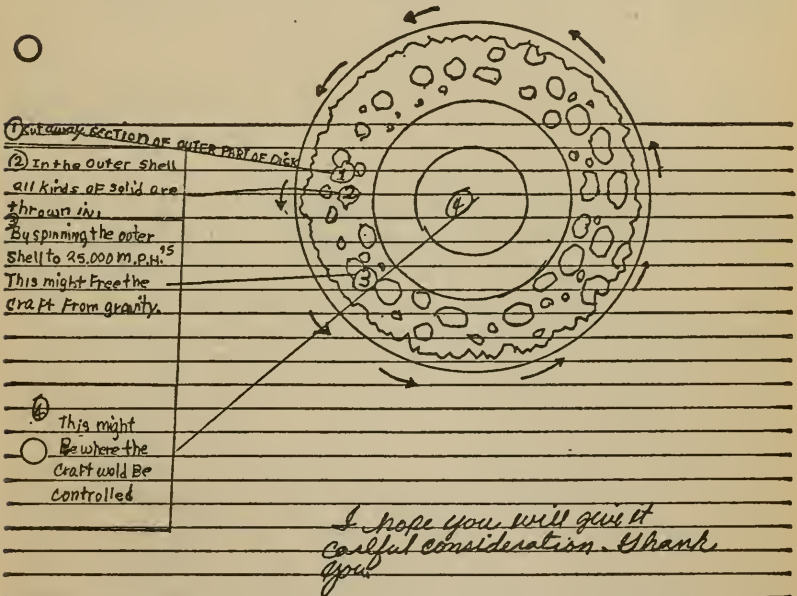 ① Cutaway section OF OUTER PART OF DISK
② In the Outer Shell
all Kinds OF Solid are
thrown in.
③
By spinning the outer
Shell to 25.000 M.P.H.'s
This might Free the
Craft From gravity.
1
2
3
4
4
This might
Be where the
Craft wold Be
Controlled
I hope you will give it
carlful consideration. Thank
you.